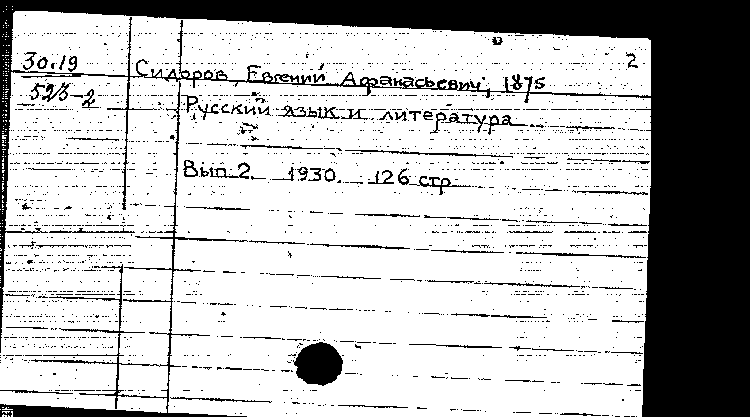 2
30.19
523-2
Сидоров, Евгений Афанасьевич, 1875
Русский язык и литература
Вып. 2. 1930. 126 стр